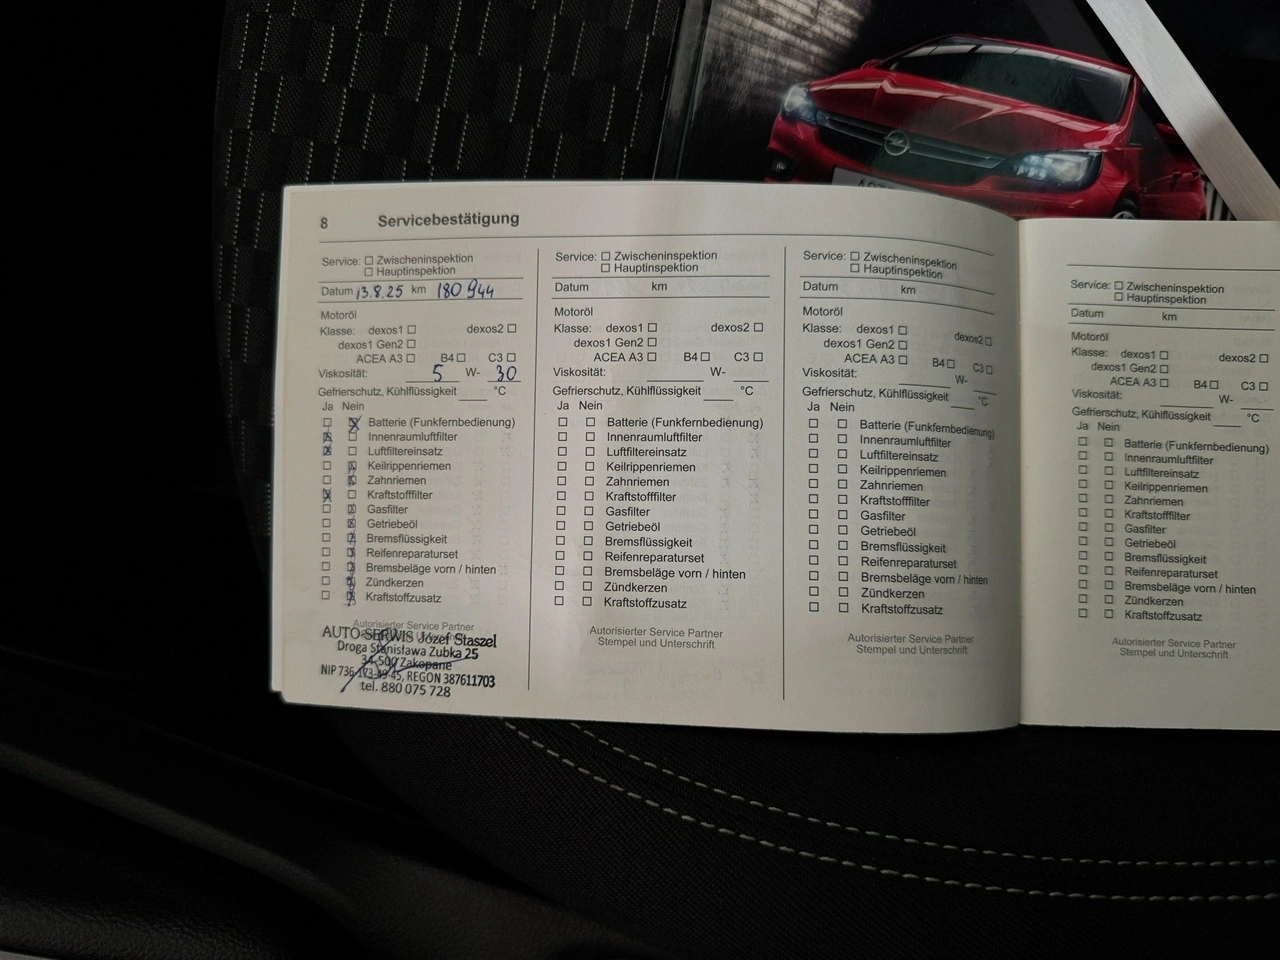 8 Servicebestätigung
Service: ☐ Zwischeninspektion
☐ Hauptinspektion
Datum 13.8.25 km 180 944
Motoröl
Klasse: dexos1 ☐ dexos2 ☐
dexos1 Gen2 ☐
ACEA A3 ☐ B4 ☐ C3 ☐
Viskosität: 5 W- 30
Gefrierschutz, Kühlflüssigkeit ____ °C
Ja Nein
☐ ☒ Batterie (Funkfernbedienung)
☒ ☐ Innenraumluftfilter
☒ ☐ Luftfiltereinsatz
☐ ☒ Keilrippenriemen
☐ ☒ Zahnriemen
☒ ☐ Kraftstofffilter
☐ ☒ Gasfilter
☐ ☒ Getriebeöl
☐ ☒ Bremsflüssigkeit
☐ ☒ Reifenreparaturset
☐ ☒ Bremsbeläge vorn / hinten
☐ ☒ Zündkerzen
☐ ☒ Kraftstoffzusatz
Autorisierter Service Partner
AUTO-SERWIS Józef Staszel
Droga Stanisława Zubka 25
34-500 Zakopane
NIP 736-173-49-45, REGON 387611703
tel. 880 075 728
Service: ☐ Zwischeninspektion
☐ Hauptinspektion
Datum km
Motoröl
Klasse: dexos1 ☐ dexos2 ☐
dexos1 Gen2 ☐
ACEA A3 ☐ B4 ☐ C3 ☐
Viskosität: ____ W- ____
Gefrierschutz, Kühlflüssigkeit ____ °C
Ja Nein
☐ ☐ Batterie (Funkfernbedienung)
☐ ☐ Innenraumluftfilter
☐ ☐ Luftfiltereinsatz
☐ ☐ Keilrippenriemen
☐ ☐ Zahnriemen
☐ ☐ Kraftstofffilter
☐ ☐ Gasfilter
☐ ☐ Getriebeöl
☐ ☐ Bremsflüssigkeit
☐ ☐ Reifenreparaturset
☐ ☐ Bremsbeläge vorn / hinten
☐ ☐ Zündkerzen
☐ ☐ Kraftstoffzusatz
Autorisierter Service Partner
Stempel und Unterschrift
Service: ☐ Zwischeninspektion
☐ Hauptinspektion
Datum km
Motoröl
Klasse: dexos1 ☐ dexos2 ☐
dexos1 Gen2 ☐
ACEA A3 ☐ B4 ☐ C3 ☐
Viskosität: ____ W- ____
Gefrierschutz, Kühlflüssigkeit ____ °C
Ja Nein
☐ ☐ Batterie (Funkfernbedienung)
☐ ☐ Innenraumluftfilter
☐ ☐ Luftfiltereinsatz
☐ ☐ Keilrippenriemen
☐ ☐ Zahnriemen
☐ ☐ Kraftstofffilter
☐ ☐ Gasfilter
☐ ☐ Getriebeöl
☐ ☐ Bremsflüssigkeit
☐ ☐ Reifenreparaturset
☐ ☐ Bremsbeläge vorn / hinten
☐ ☐ Zündkerzen
☐ ☐ Kraftstoffzusatz
Autorisierter Service Partner
Stempel und Unterschrift
Service: ☐ Zwischeninspektion
☐ Hauptinspektion
Datum km
Motoröl
Klasse: dexos1 ☐ dexos2 ☐
dexos1 Gen2 ☐
ACEA A3 ☐ B4 ☐ C3 ☐
Viskosität: ____ W- ____
Gefrierschutz, Kühlflüssigkeit ____ °C
Ja Nein
☐ ☐ Batterie (Funkfernbedienung)
☐ ☐ Innenraumluftfilter
☐ ☐ Luftfiltereinsatz
☐ ☐ Keilrippenriemen
☐ ☐ Zahnriemen
☐ ☐ Kraftstofffilter
☐ ☐ Gasfilter
☐ ☐ Getriebeöl
☐ ☐ Bremsflüssigkeit
☐ ☐ Reifenreparaturset
☐ ☐ Bremsbeläge vorn / hinten
☐ ☐ Zündkerzen
☐ ☐ Kraftstoffzusatz
Autorisierter Service Partner
Stempel und Unterschrift